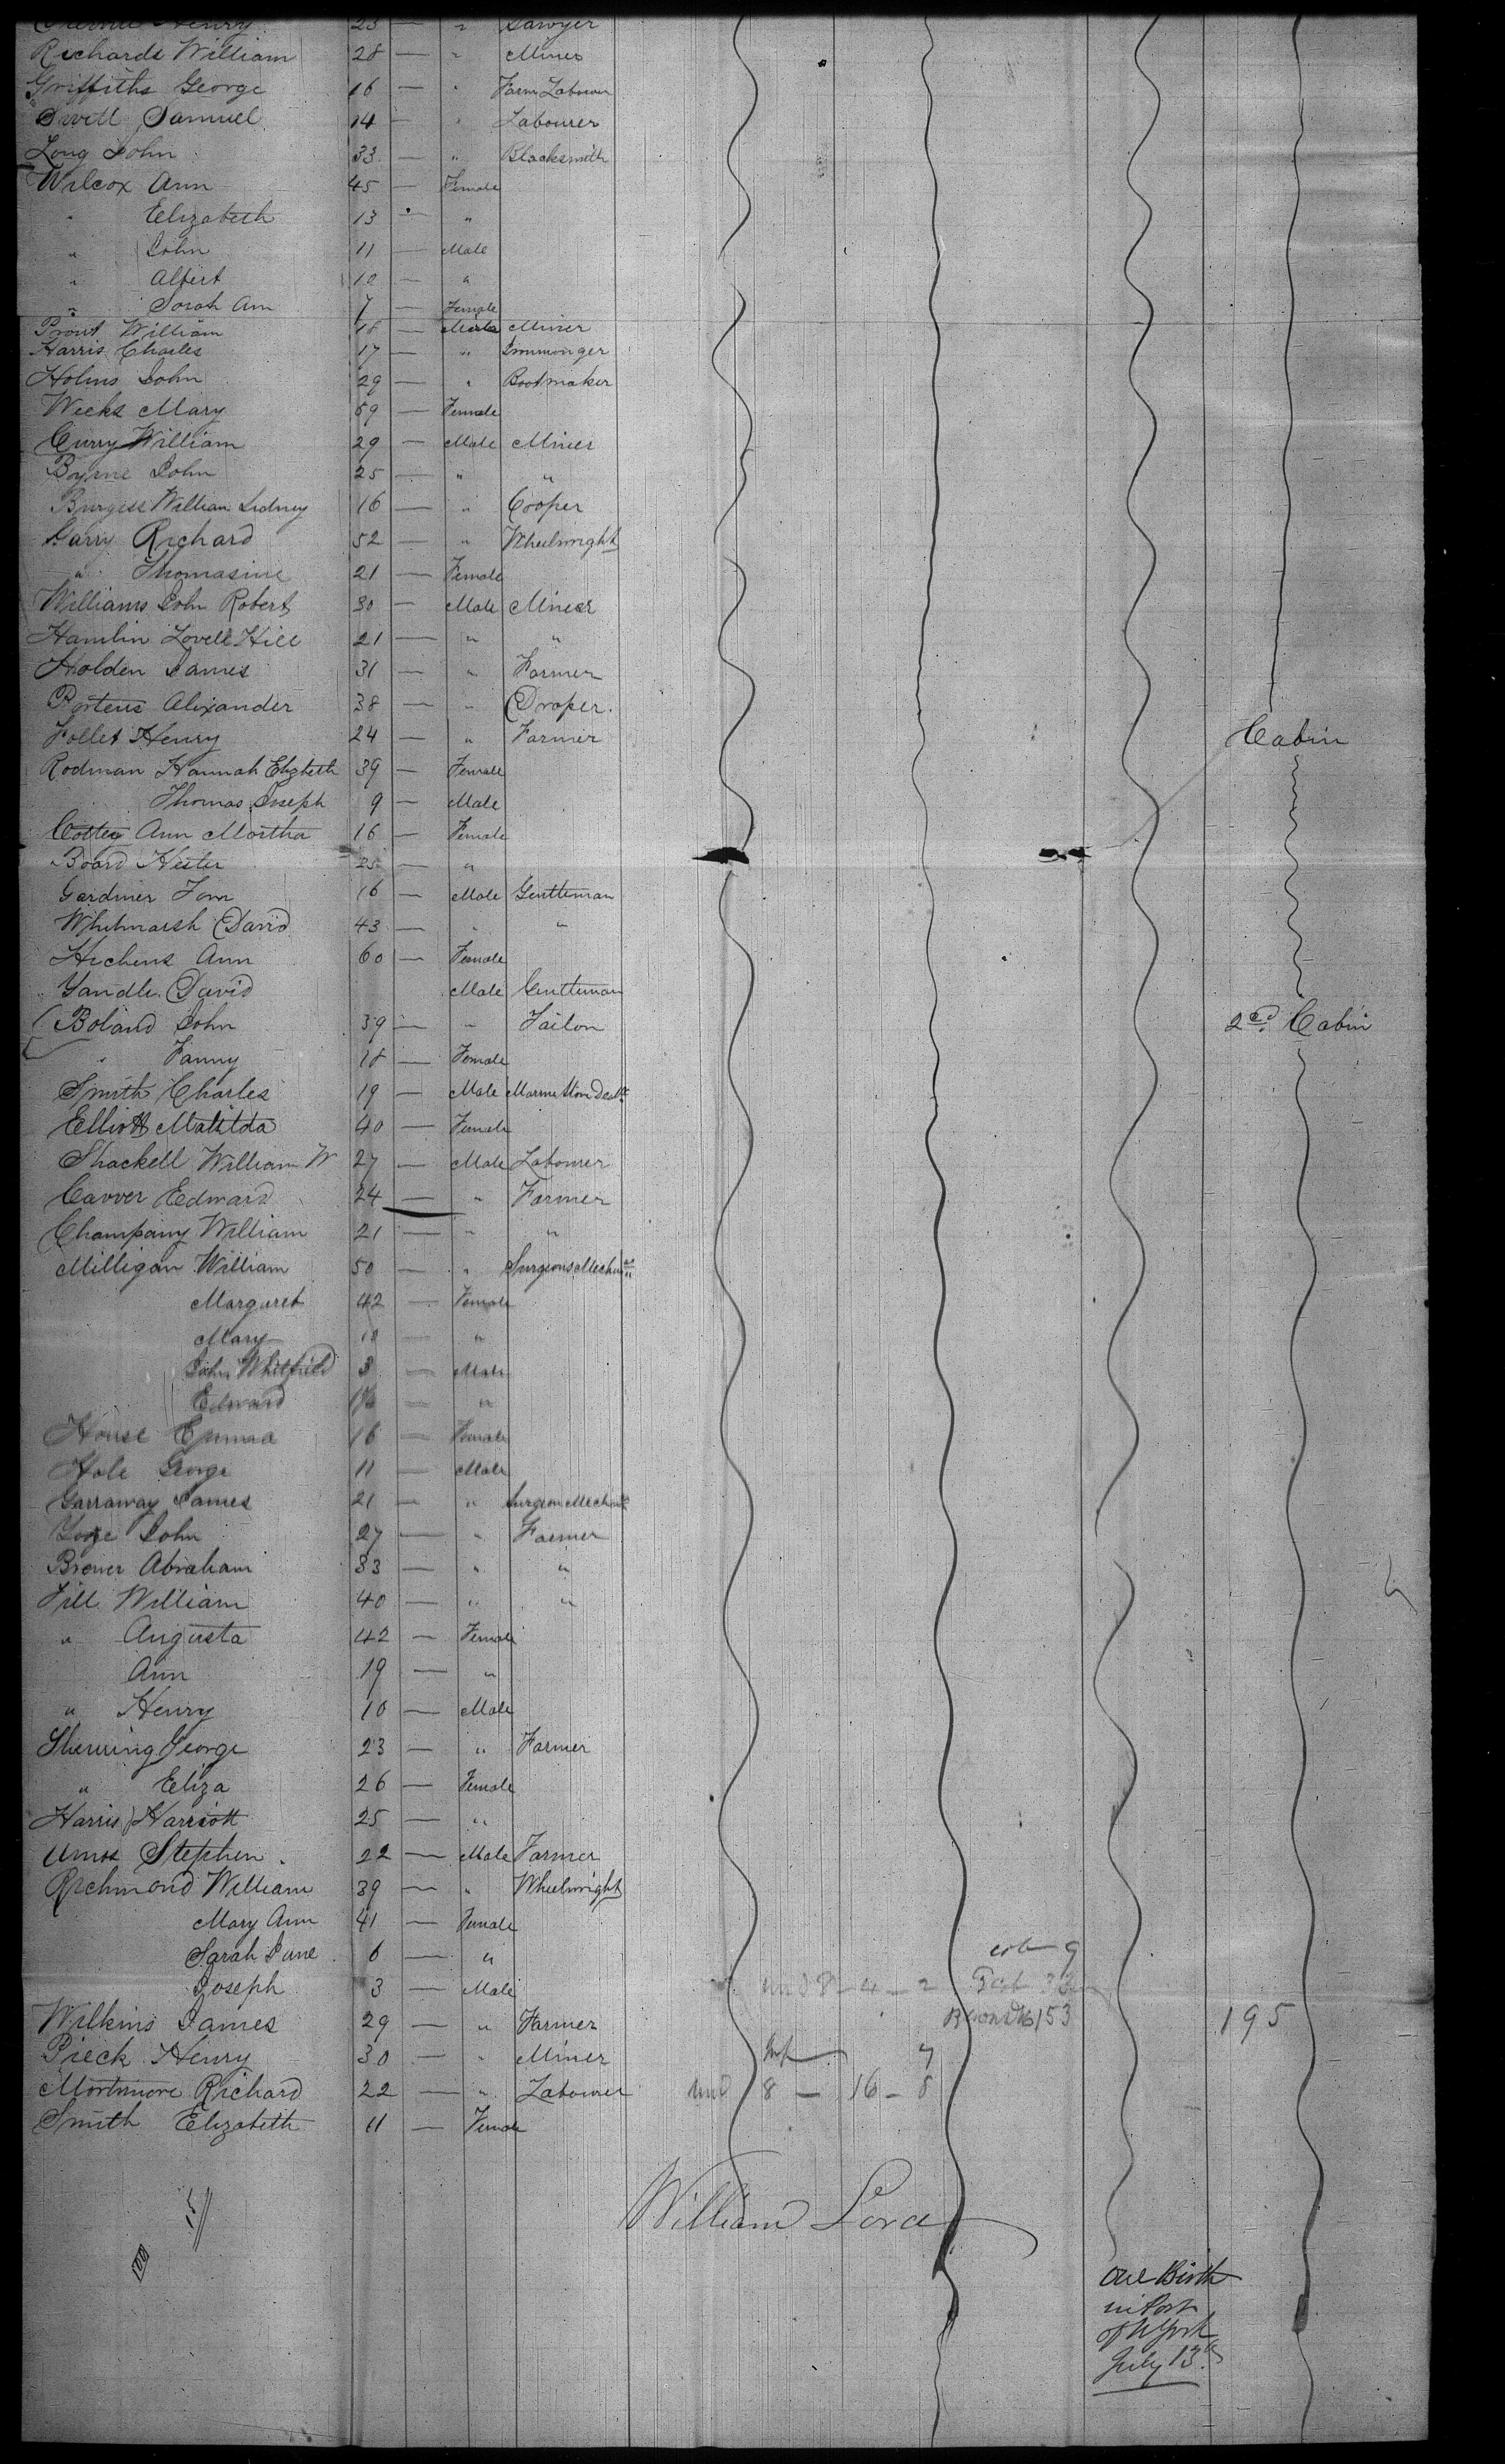 Henry 23 — " Sawyer
Richards William 28 — " Miner
Griffiths George 16 — " Farm Labourer
Samuel 14 — " Labourer
Long John 33 — " Blacksmith
Wilcox Ann 45 — Female
" Elizabeth 13 — "
" John 11 — Male
" Albert 10 — "
" Sarah Ann 7 — Female
Prout William 18 — Male Miner
Harris Charles 17 — " Ironmonger
Holms John 29 — " Bootmaker
Weeks Mary 59 — Female
Curry William 29 — Male Miner
Byrne John 25 — " "
Burgess William Sidney 16 — " Cooper
Garry Richard 52 — " Wheelwright
" Thomasine 21 — Female
Williams John Robert 30 — Male Miner
Hamlin Lovell Hill 21 — " "
Holden James 31 — " Farmer
Porteus Alixander 38 — " Draper.
Follet Henry 24 — " Farmer Cabin
Rodman Hannah Elizbeth 39 — Female
Thomas Joseph 9 — Male
Ann Martha 16 — Female
Board Hester 25 — "
Gardiner Tom 16 — Male Gentleman
Whitmarsh David 43 — " "
Hichens Ann 60 — Female
Yandle David Male Gentleman
Boland John 39 — " Tailor 2nd Cabin
" Fanny 18 — Female
Smith Charles 19 — Male Marine Store Dealr
Elliott Matilda 40 — Female
Shackell William W 27 — Male Labourer
Carver Edward 24 — " Farmer
Champany William 21 — " "
Milligan William 50 — " Surgeons Mechanic
Margaret 42 — Female
Mary 10 — "
John Whitfield 3 — Male
Edward — "
House Emma 16 — Female
Hole George 11 — Male
Garraway James 21 — " Surgeon Mechanic
John 27 — " Farmer
Brewer Abraham 33 — " "
Till William 40 — " "
" Augusta 42 — Female
Ann 19 — "
" Henry 10 — Male
Sherring George 23 — " Farmer
" Eliza 26 — Female
Harris Harriott 25 — "
Amos Stephen 22 — Male Farmer
Richmond William 39 — " Wheelwright
Mary Ann 41 — Female
Sarah Jane 6 — " 9
Joseph 3 — Male und 8 — 4 — 2
Wilkins James 29 — " Farmer 153 195
Pieck Henry 30 — " Miner Inf — 7
Mortimore Richard 22 — " Labourer und 8 — 16 — 8
Smith Elizabeth 11 — Female
William Lord
One Birth
in Port
of N York
July 13th